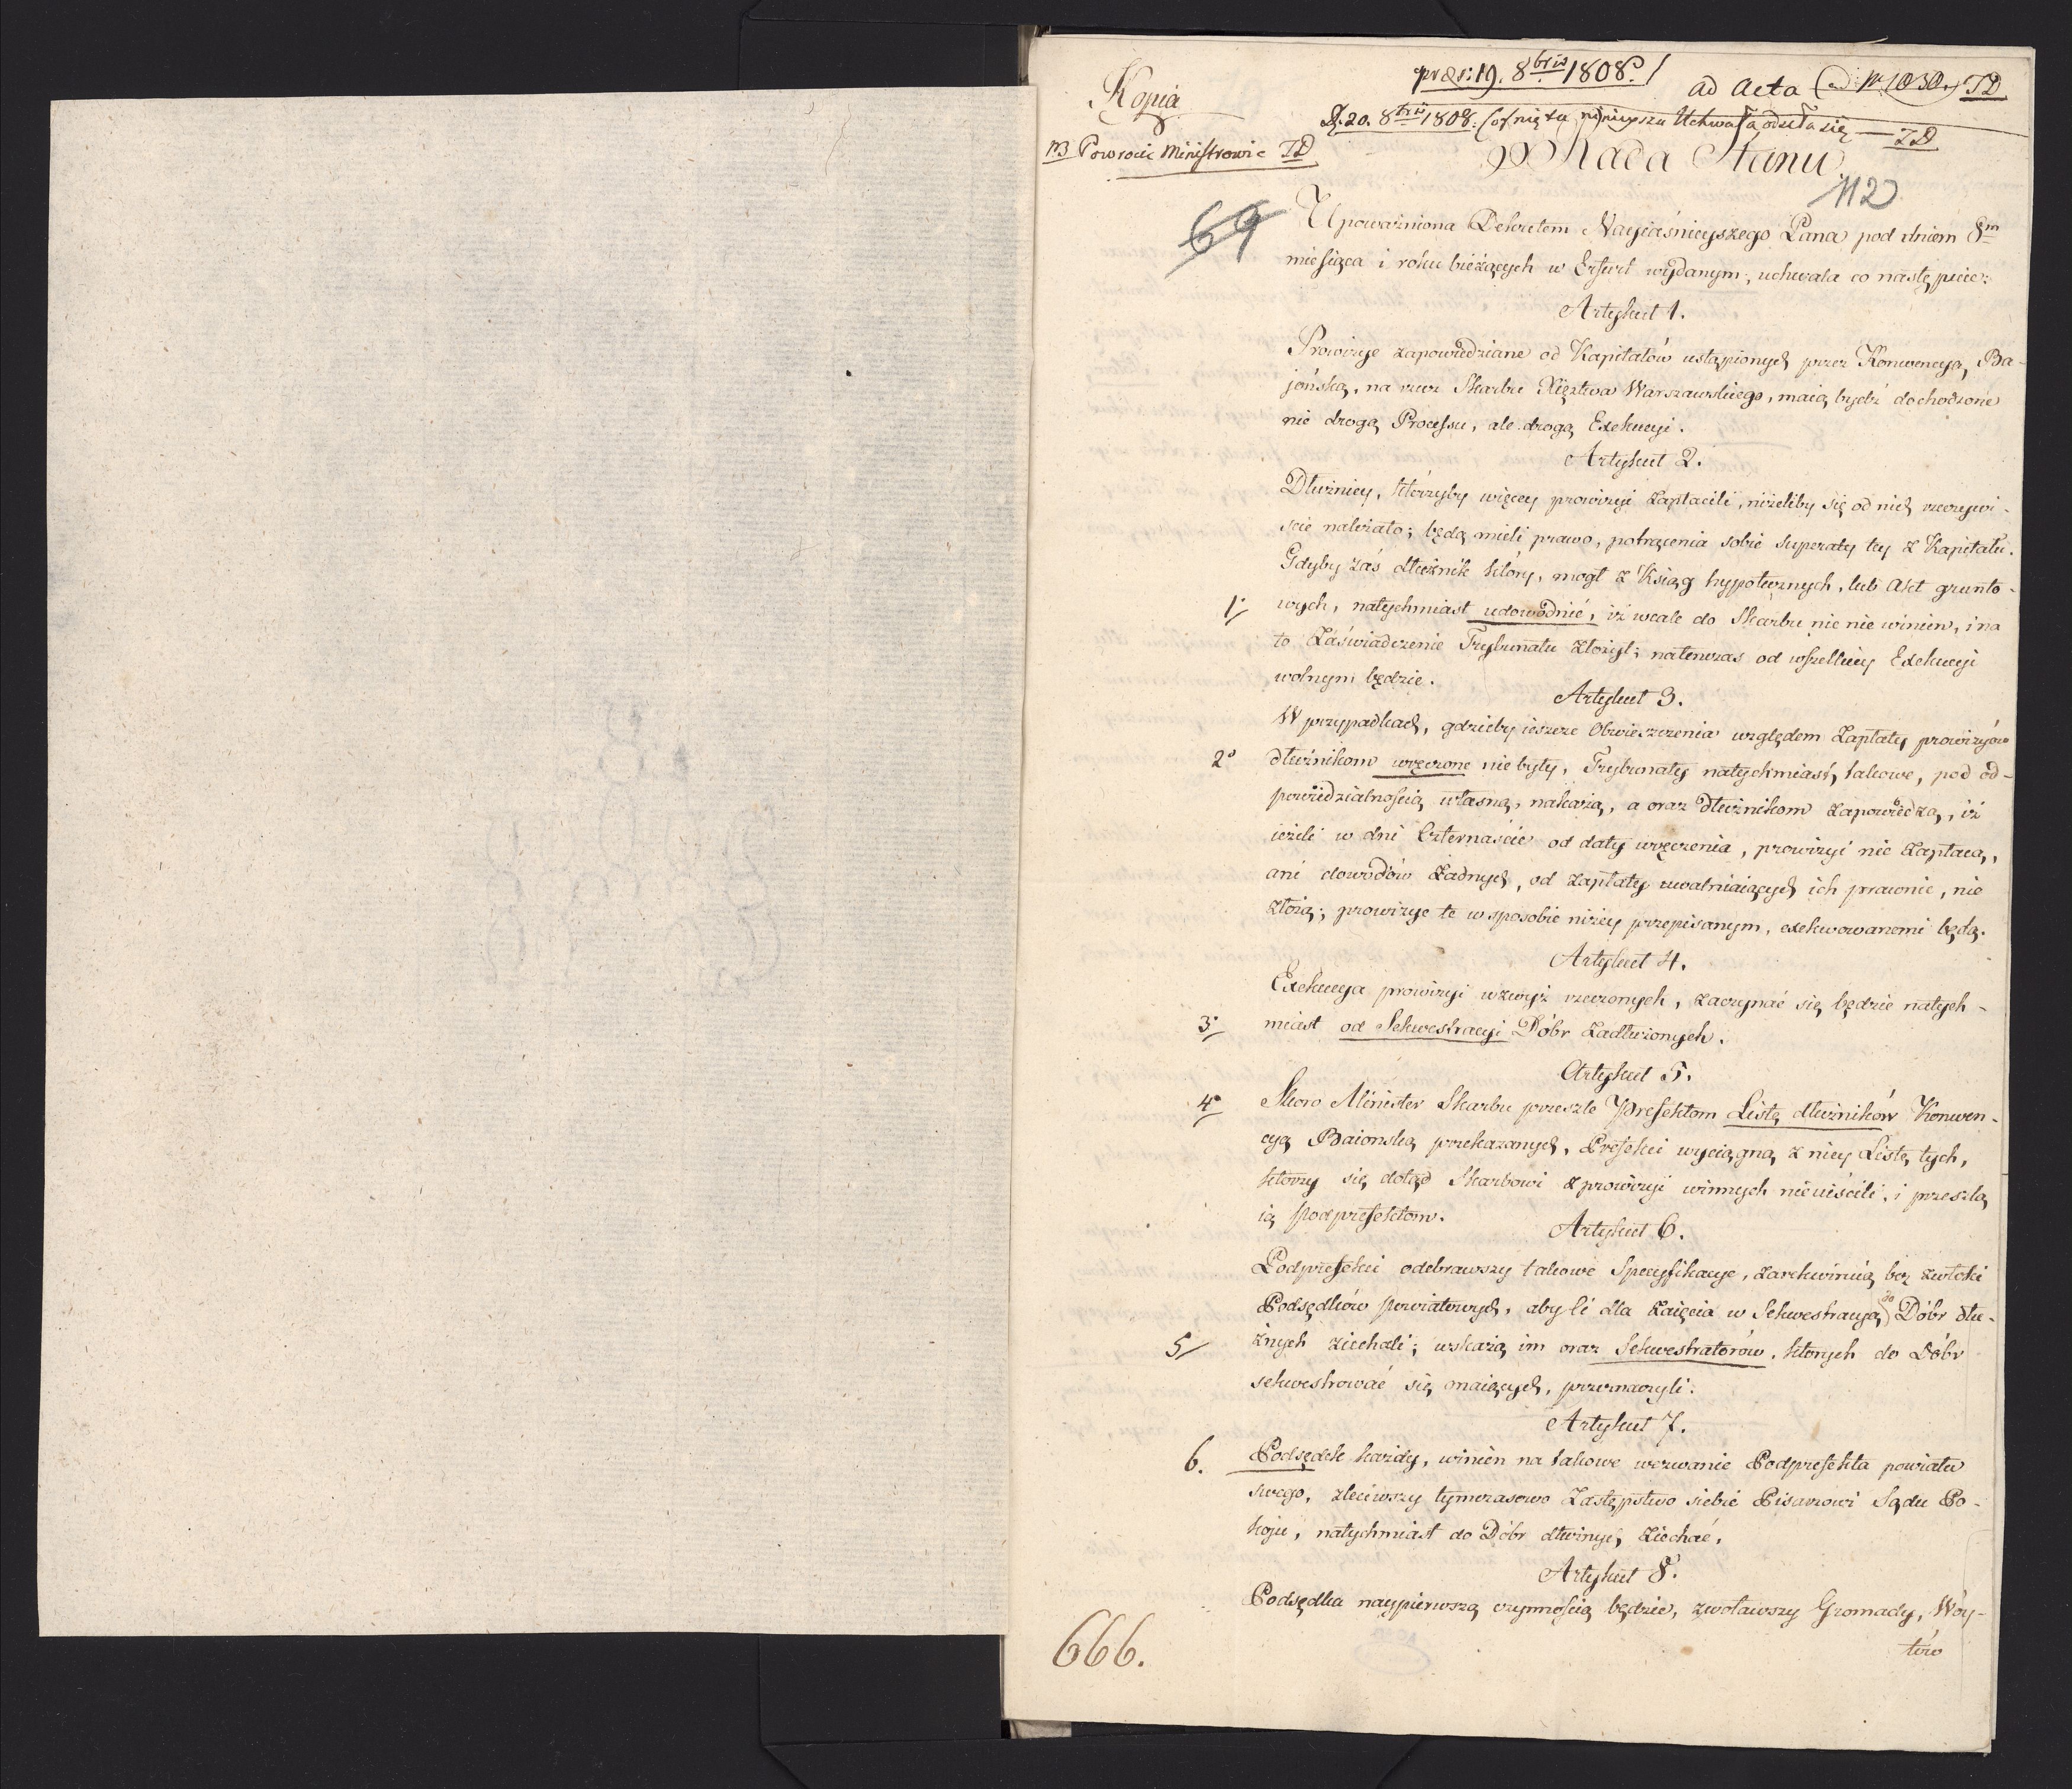 Kopia
præs: 19. 8bris 1808.
ad Acta ad Nr 1030. TD
D. 20. 8bris 1808. Uchwała odsyła się — TD
NB Powrócić Ministrowi TD
Rada Stanu
112
69
Upoważniona Dekretem Nayiaśnieyszego Pana pod dniem 8m
miesiąca i roku bieżących w Erfurt wydanym, uchwala co następuie:
Artykuł 1.
Prowizye zapowiedziane od Kapitałów ustąpionych przez Konwencyą Ba-
jońską, na rzecz Skarbu Xięztwa Warszawskiego, maią bydź dochodzone
nie drogą Processu, ale drogą Exekucyi.
Artykuł 2.
Dłużnicy, którzyby więcey prowizyi zapłacili, niżeliby się od nich rzeczywi-
ście należało; będą mieli prawo, potrącenia sobie superaty tey z Kapitału.
Gdyby zaś dłużnik który, mógł z Ksiąg hypotecznych, lub Akt grunto-
1. wych, natychmiast udowodnić, iż wcale do Skarbu nic nie winien, i na
to Zaświadczenie Trybunału złożył; natenczas od wszelkiey Exekucyi
wolnym będzie.
Artykuł 3.
W przypadkach, gdzieby ieszcze Obwieszczenia względem Zapłaty prowizyów
2° dłużnikom wręczone nie były, Trybunały natychmiast takowe, pod od-
powiedzialnością własną, nakażą, a oraz dłużnikom zapowiedzą, iż
ieżeli w dni Czternaście od daty wręczenia, prowizyi nie zapłacą,
ani dowodów żadnych, od zapłaty uwalniaiących ich prawnie, nie
złożą; prowizye te w sposobie niżey przepisanym, exekwowanemi będą.
Artykuł 4.
Exekucya prowizyi wzwyż rzeczonych, zaczynać się będzie natych-
3. miast od Sekwestracyi Dóbr zadłużonych.
Artykuł 5.
4° Skoro Minister Skarbu prześle Prefektom Listę dłużników Konwen-
cyą Baionską przekazanych, Prefekci wyciągną z niey Listę tych,
którzy się dotąd Skarbowi z prowizyi winnych nieuiścili, i prześlą
ią Podprefektom.
Artykuł 6.
Podprefekci odebrawszy takowe Specyfikacye, zarekwiruią bez zwłoki
Podsędków powiatowych, aby ci dla zaięcia w Sekwestracyą do Dóbr dłu-
5 żnych ziechali; wskażą im oraz Sekwestratorów, których do Dóbr
sekwestrować się maiących, przeznaczyli.
Artykuł 7.
6. Podsędek każdy, winien na takowe wezwanie Podprefekta powiatu
swego, zleciwszy tymczasowo Zastępstwo siebie Pisarzowi Sądu Po-
koju, natychmiast do Dóbr dłużnych ziechać.
Artykuł 8.
Podsędka naypierwszą czynnością będzie, zwoławszy Gromady, Wóy-
tów
666.